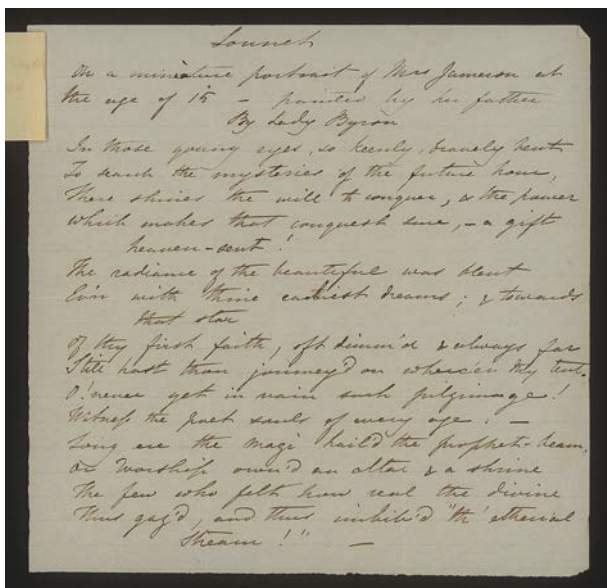 Sonnet
On a miniature portrait of Mrs Jameson at
the age of 15 - painted by her father
By Lady Byron
In those young eyes, so keenly, bravely bent
To search the mysteries of the future hour,
There shines the will to conquer, & the power
Which makes that conquest sure, - a gift
heaven-sent!
The radiance of the beautiful was blent
Ev'n with thine earliest dreams; & towards
that star
Of thy first faith, oft dimm'd & always far
Still hast thou journey'd on where'er thy tent.
O! never yet in vain such pilgrimage!
Witness the poet souls of every age. -
Long ere the Magi hail'd the prophet-beam,
Or Worship own'd an altar & a shrine
The few who felt how real the divine
Thus gaz'd, and thus imbib'd "th' etherial
Stream!" -